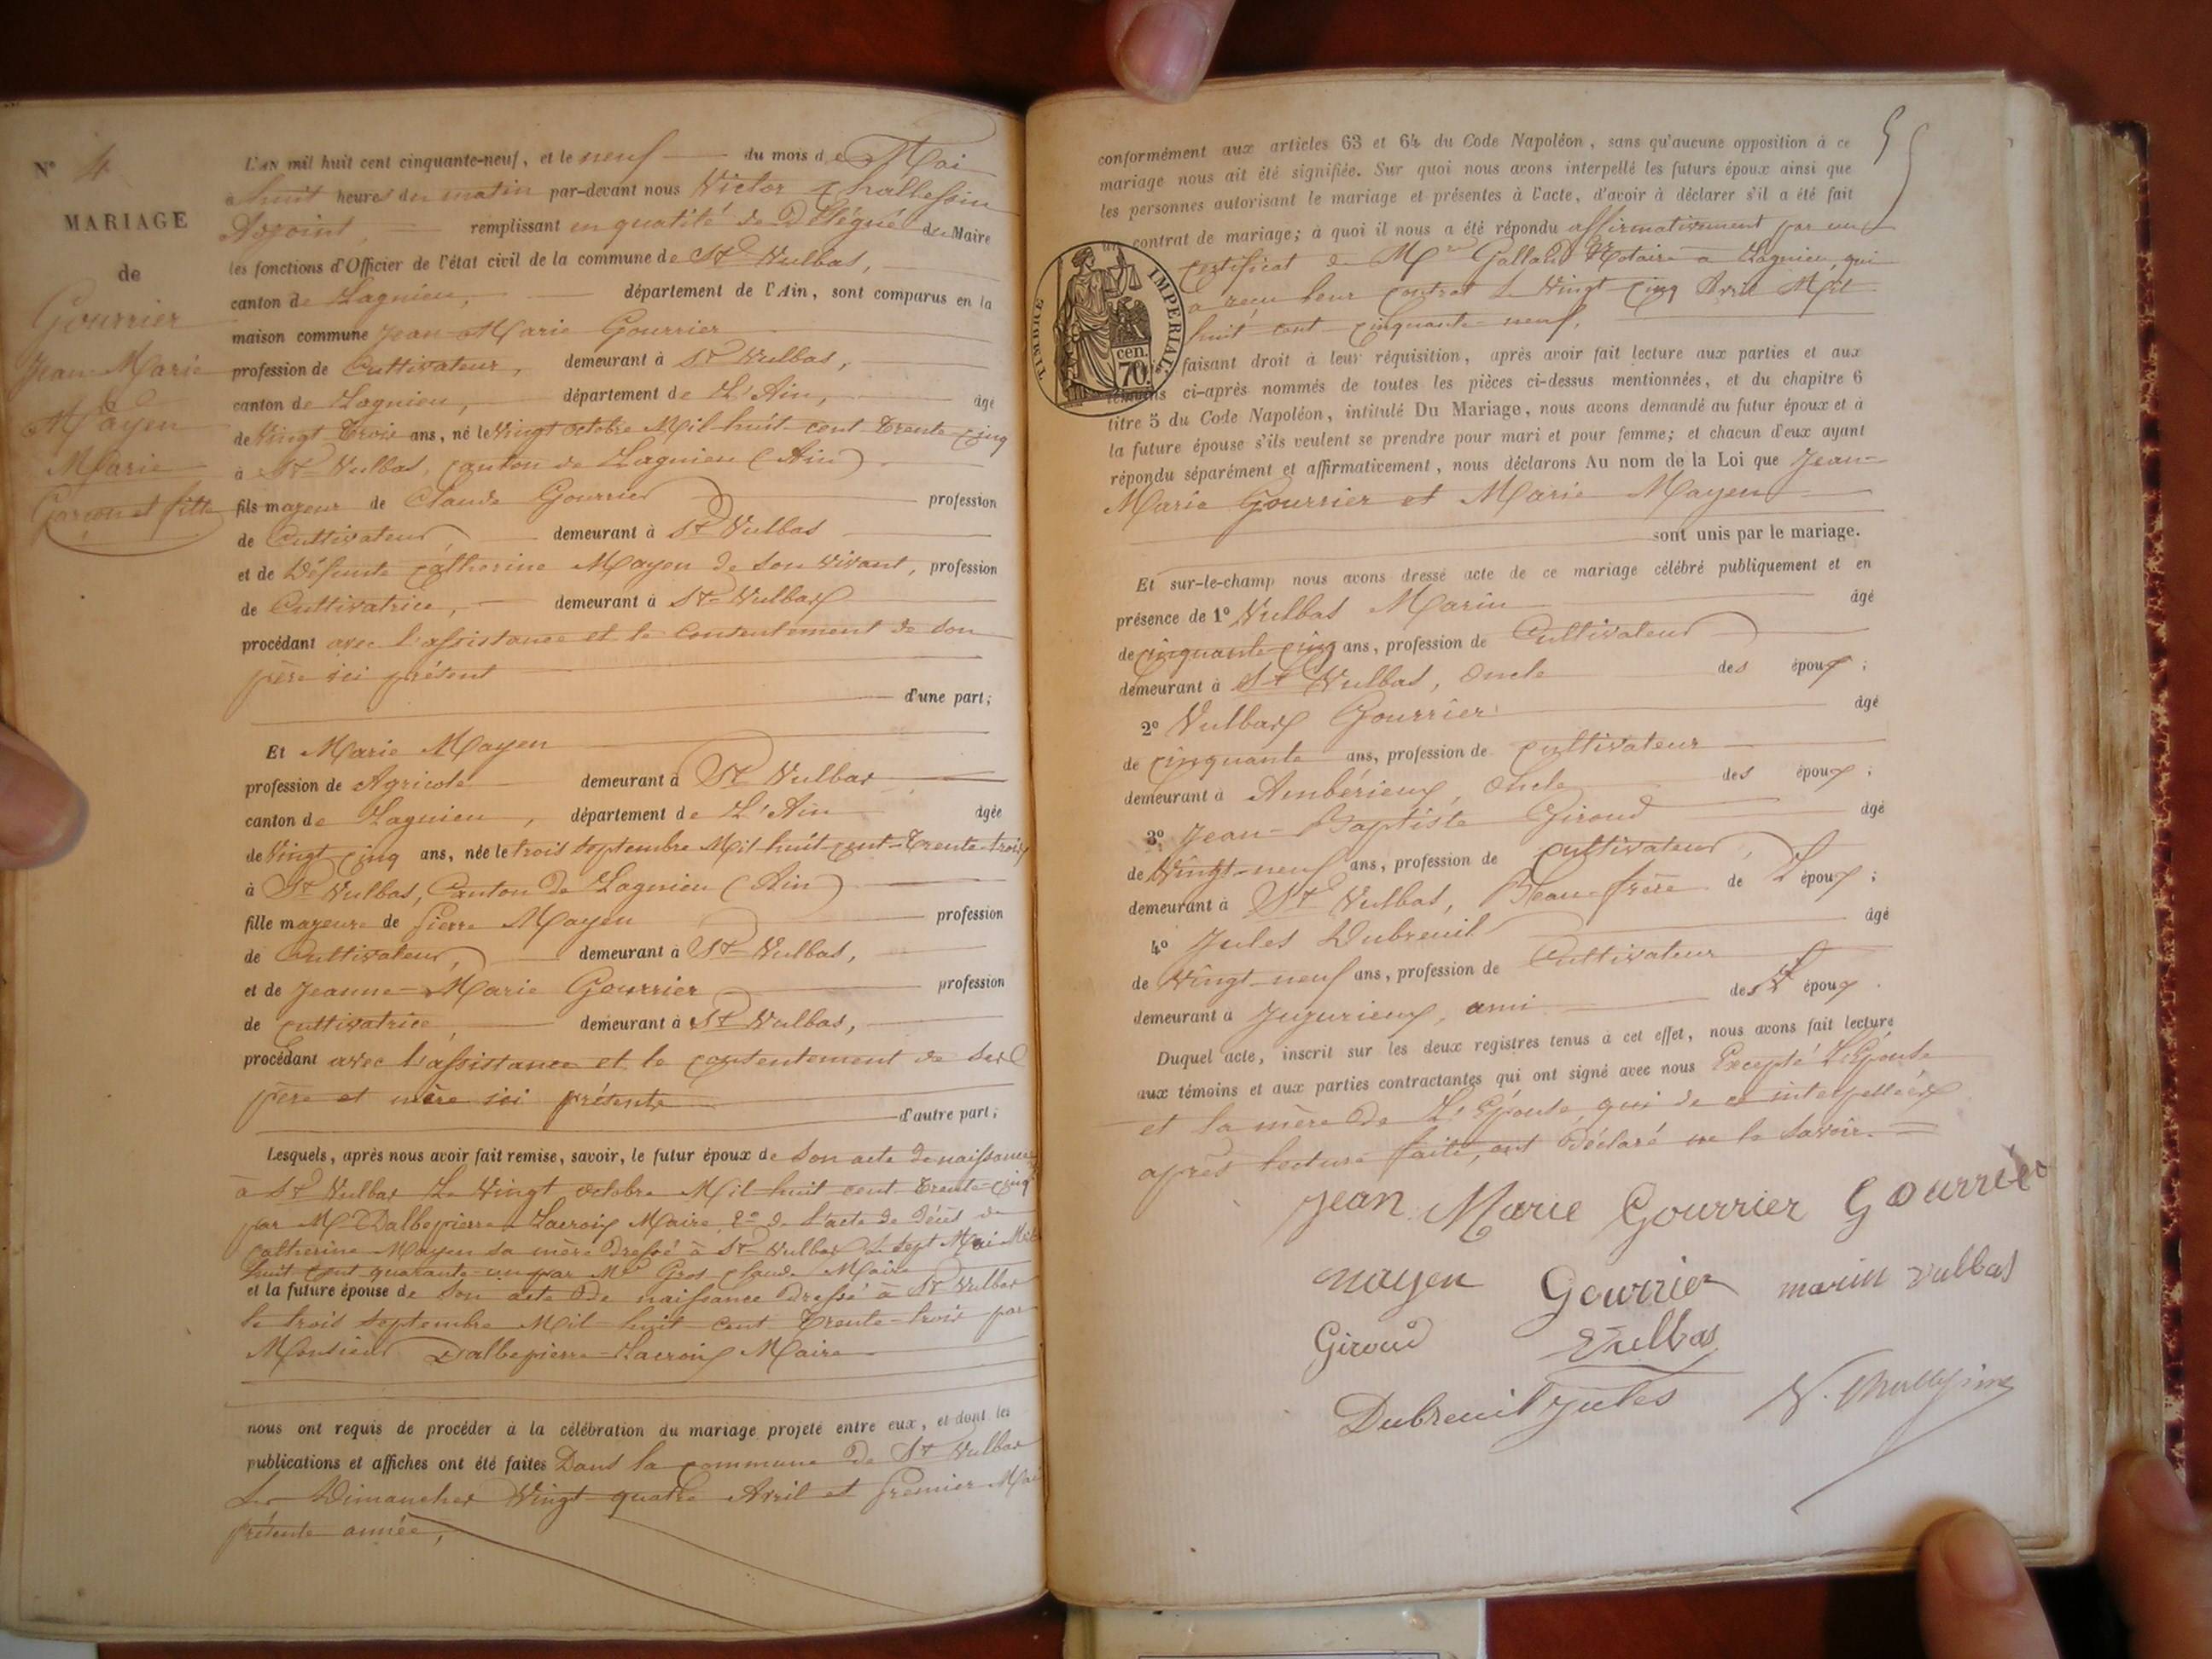 N° 4
MARIAGE
de
Gourrier
Jean Marie
Mayen
Marie
Garçon et fille
L'AN mil huit cent cinquante-neuf, et le neuf du mois de Mai
à huit heures du matin par-devant nous Victor
Adjoint, remplissant en qualité de Délégué du Maire
les fonctions d'Officier de l'état civil de la commune de St Vulbas,
canton de Lagnieu, département de l'Ain, sont comparus en la
maison commune Jean Marie Gourrier
profession de Cultivateur, demeurant à St Vulbas,
canton de Lagnieu, département de L'Ain, âgé
de Vingt Trois ans, né le Vingt octobre Mil huit cent Trente cinq
à St Vulbas, canton de Lagnieu (Ain)
fils majeur de Claude Gourrier profession
de Cultivateur, demeurant à St Vulbas
et de Défunte Catherine Mayen de son vivant, profession
de Cultivatrice, demeurant à St Vulbas
procédant avec l'assistance et le consentement de son
père ici présent
d'une part;
Et Marie Mayen
profession de Agricole demeurant à St Vulbas
canton de Lagnieu, département de L'Ain âgée
de Vingt cinq ans, née le trois septembre Mil huit cent Trente trois
à St Vulbas, Canton de Lagnieu (Ain)
fille majeure de Pierre Mayen profession
de Cultivateur, demeurant à St Vulbas,
et de Jeanne-Marie Gourrier profession
de cultivatrice, demeurant à St Vulbas,
procédant avec l'assistance et le consentement de ses
père et mère ici présents
d'autre part;
Lesquels, après nous avoir fait remise, savoir, le futur époux de son acte de naissance
à St Vulbas Le Vingt octobre Mil huit cent Trente-cinq
par Mr Dalbepierre-Lacroix Maire, 2° de l'acte de décès de
Catherine Mayen sa mère dressé à St Vulbas le sept Mai Mil
huit cent quarante-un par Mr Gros Claude Maire
et la future épouse de son acte de naissance dressé à St Vulbas
le trois septembre Mil huit cent Trente-trois par
Monsieur Dalbepierre-Lacroix Maire
nous ont requis de procéder à la célébration du mariage projeté entre eux, et dont les
publications et affiches ont été faites Dans la commune de St Vulbas
Les Dimanches Vingt quatre Avril et Premier Mai
présente année,
5
conformément aux articles 63 et 64 du Code Napoléon, sans qu'aucune opposition à ce
mariage nous ait été signifiée. Sur quoi nous avons interpellé les futurs époux ainsi que
les personnes autorisant le mariage et présentes à l'acte, d'avoir à déclarer s'il a été fait
un contrat de mariage; à quoi il nous a été répondu affirmativement par un
certificat de Galland Notaire à Lagnieu, qui
a reçu leur contrat le Vingt cinq Avril Mil
huit cent cinquante-neuf,
TIMBRE IMPERIAL
70 cen.
faisant droit à leur réquisition, après avoir fait lecture aux parties et aux
témoins ci-après nommés de toutes les pièces ci-dessus mentionnées, et du chapitre 6
titre 5 du Code Napoléon, intitulé Du Mariage, nous avons demandé au futur époux et à
la future épouse s'ils veulent se prendre pour mari et pour femme; et chacun d'eux ayant
répondu séparément et affirmativement, nous déclarons Au nom de la Loi que Jean-
Marie Gourrier et Marie Mayen
sont unis par le mariage.
Et sur-le-champ nous avons dressé acte de ce mariage célébré publiquement et en
présence de 1° Vulbas Marin âgé
de cinquante-cinq ans, profession de Cultivateur
demeurant à St Vulbas, oncle des époux;
2° Vulbas Gourrier âgé
de cinquante ans, profession de cultivateur
demeurant à Ambérieux, oncle des époux;
3° Jean-Baptiste Giroud âgé
de Vingt-neuf ans, profession de cultivateur,
demeurant à St Vulbas, Beau-frère de L'époux;
4° Jules Dubreuil âgé
de Vingt-neuf ans, profession de Cultivateur
demeurant à Jujurieux, ami des époux.
Duquel acte, inscrit sur les deux registres tenus à cet effet, nous avons fait lecture
aux témoins et aux parties contractantes qui ont signé avec nous Excepté L'Épouse
et la mère de L'Épouse, qui de ce interpellées
après lecture faite, ont déclaré ne le savoir.
Jean Marie Gourrier Gourrier
mayen Gourrier marin vulbas
Giroud Vulbas
Dubreuil jules